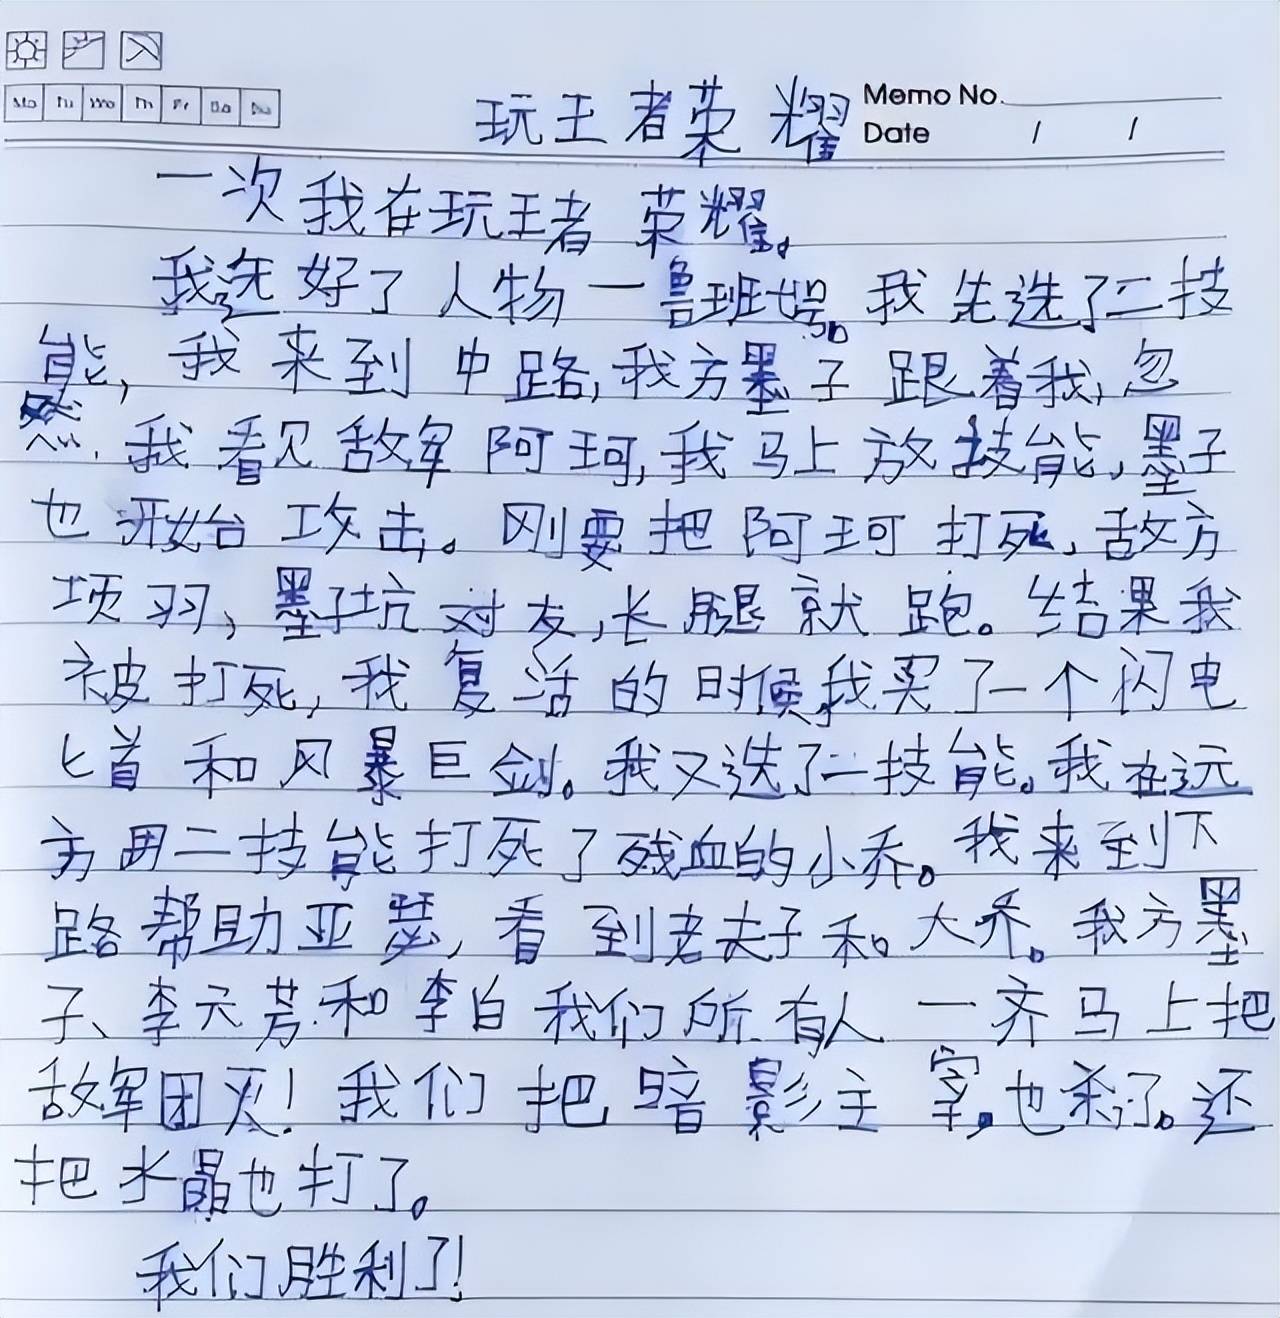 Mo Tu We Th Fr Sa Su
玩王者荣耀
Memo No.
Date / /
一次我在玩王者荣耀。
我选好了人物一鲁班七号。我先选了二技
能，我来到中路，我方墨子跟着我，忽
然，我看见敌军阿珂，我马上放技能，墨子
也开始攻击。刚要把阿珂打死，敌方
项羽，墨子坑对友，长腿就跑。结果我
被打死，我复活的时候我买了一个闪电
匕首和风暴巨剑。我又选了二技能。我在远
方用二技能打死了残血的小乔。我来到下
路帮助亚瑟，看到老夫子和大乔。我方墨
子、李元芳和李白我们所有人一齐马上把
敌军团灭！我们把暗影主宰也杀了。还
把水晶也打了。
我们胜利了！